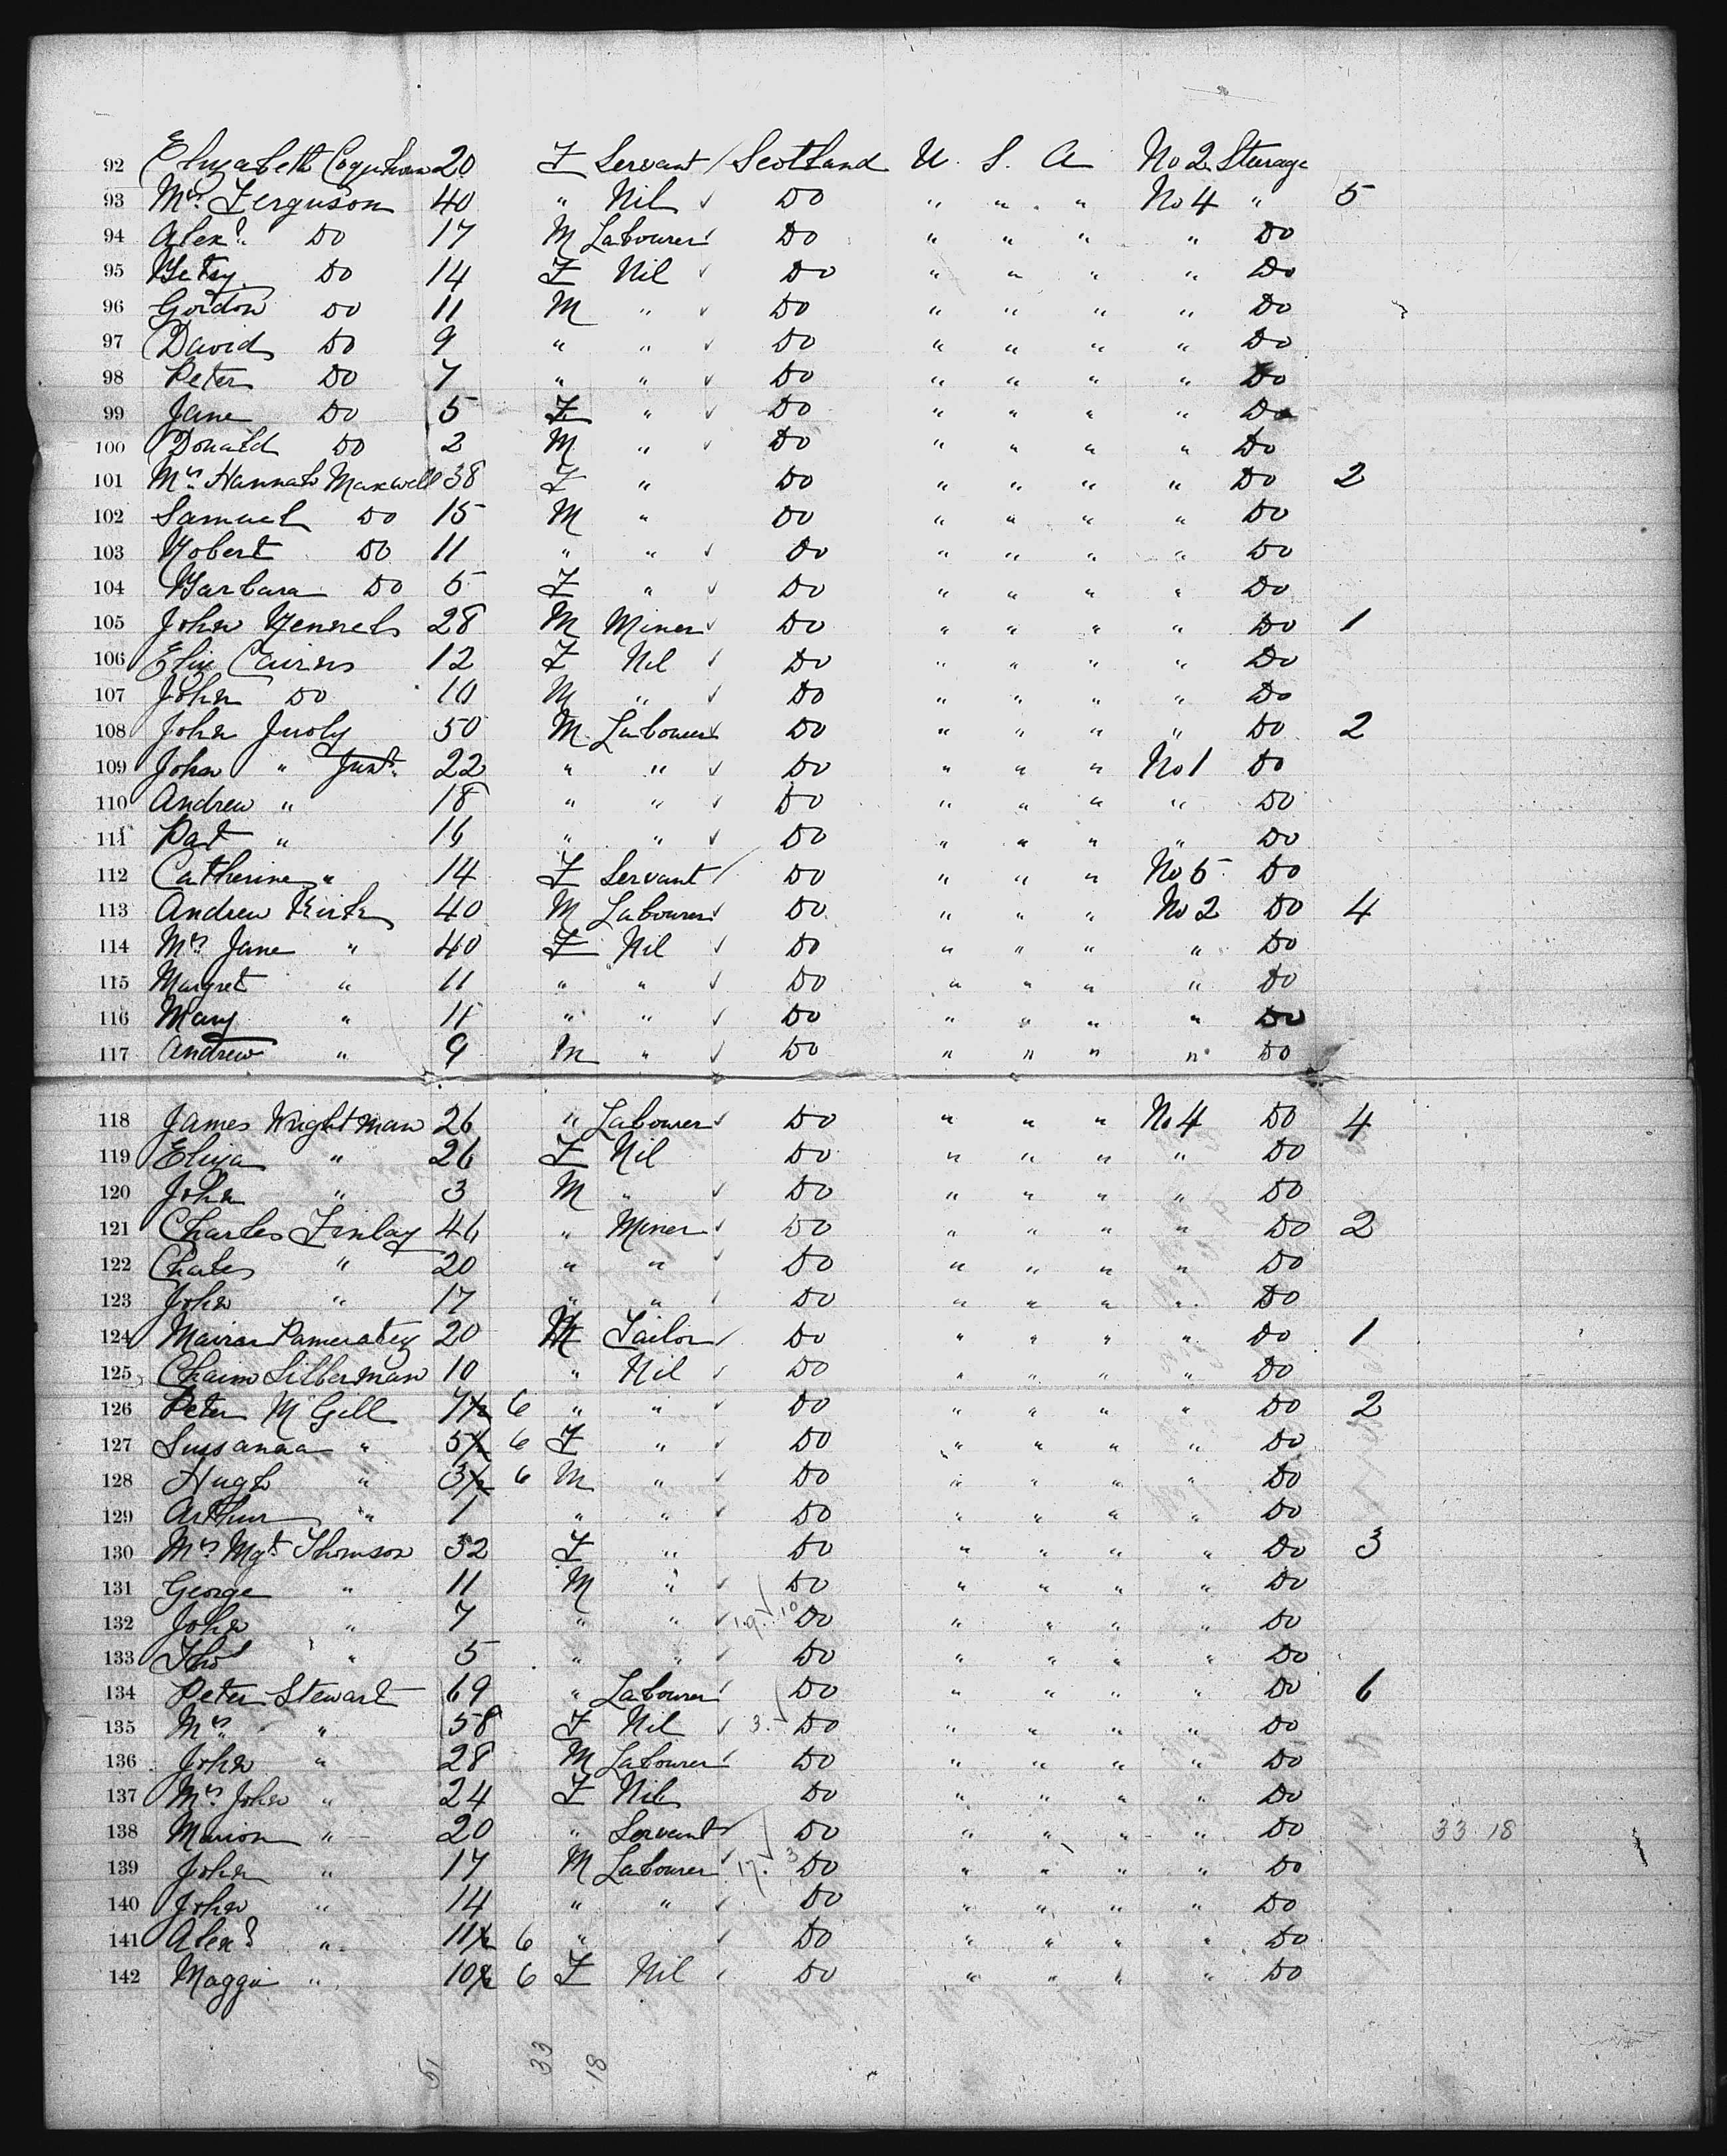 92 Elizabeth Coquhoun 20 F Servant Scotland U. S. A No 2 Steerage
93 Mrs. Ferguson 40 " Nil Do " " " No 4 " 5
94 Alexr. Do 17 M Labourer Do " " " " Do
95 Betsy Do 14 F Nil Do " " " " Do
96 Gordon Do 11 M " Do " " " " Do
97 David Do 9 " " Do " " " " Do
98 Peter Do 7 " " Do " " " " Do
99 Jane Do 5 F " Do " " " " Do
100 Donald Do 2 M " Do " " " " Do
101 Mrs. Hannah Maxwell 38 F " Do " " " " Do 2
102 Samuel Do 15 M " Do " " " " Do
103 Robert Do 11 " " Do " " " " Do
104 Barbara Do 5 F " Do " " " " Do
105 John 28 M Miner Do " " " " Do 1
106 Eliz Cairns 12 F Nil Do " " " " Do
107 John Do 10 M " Do " " " " Do
108 John 50 M Labourer Do " " " " Do 2
109 John " Junr. 22 " " Do " " " No 1 Do
110 Andrew " 18 " " Do " " " " Do
111 Pat " 16 " " Do " " " " Do
112 Catherine " 14 F Servant Do " " " No 5 Do
113 Andrew Kirk 40 M Labourer Do " " " No 2 Do 4
114 Mrs. Jane " 40 F Nil Do " " " " Do
115 Margret " 11 " " Do " " " " Do
116 Mary " 11 " " Do " " " " Do
117 Andrew " 9 M " Do " " " " Do
118 James Wrightman 26 " Labourer Do " " " No 4 Do 4
119 Eliza " 26 F Nil Do " " " " Do
120 John " 3 M " Do " " " " Do
121 Charles Finlay 46 " Miner Do " " " " Do 2
122 Charles " 20 " " Do " " " " Do
123 John " 17 " " Do " " " " Do
124 20 M Tailor Do " " " " Do 1
125 Chaim Silberman 10 " Nil Do " " " " Do
126 Peter McGill 7 1/2 6 " " Do " " " " Do 2
127 Sussanaa " 5 1/2 6 F " Do " " " " Do
128 Hugh " 3 1/2 6 M " Do " " " " Do
129 Arthur " 1 " " Do " " " " Do
130 Mrs. Mgt. Thomson 32 F " Do " " " " Do 3
131 George " 11 M " Do " " " " Do
132 John " 7 " " 19. 10 Do " " " " Do
133 Thos " 5 " " Do " " " " Do
134 Peter Stewart 69 " Labourer Do " " " " Do 6
135 Mrs. " 58 F Nil 3. Do " " " " Do
136 John " 28 M Labourer Do " " " " Do
137 Mrs. John " 24 F Nil Do " " " " Do
138 Marion " 20 " Servant Do " " " " Do 33 18
139 John " 17 M Labourer 17. 3 Do " " " " Do
140 John " 14 " " Do " " " " Do
141 Alexr. " 11 1/2 6 " Do " " " " Do
142 Maggie " 10 1/2 6 F Nil Do " " " " Do
51 33 18